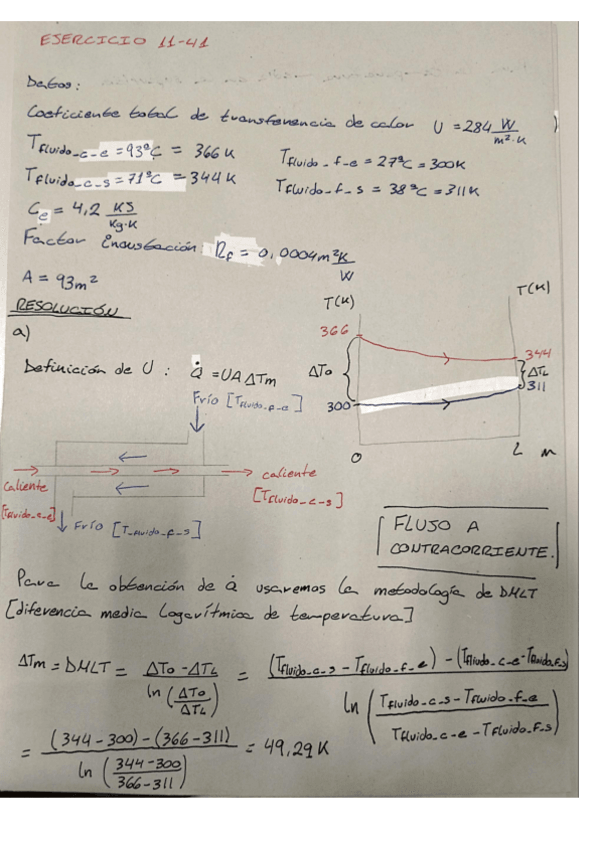 EJERCICIO 11-41
Datos:
Coeficiente total de transferencia de calor U = 284 W/m²·K
Tfluido_c_e = 93ºC = 366 K Tfluido_f_e = 27ºC = 300K
Tfluido_c_s = 71ºC = 344 K Tfluido_f_s = 38ºC = 311K
Ce = 4,2 KJ/Kg·K
Factor incrustación: Rf = 0,0004 m²K/W
A = 93m²
RESOLUCIÓN
a)
Definición de U : Q̇ = UAΔTm
T(K) T(K)
366
344
ΔTo ΔTL
311
300
0 L m
Frío [Tfluido_f_e]
caliente [Tfluido_c_e]
caliente [Tfluido_c_s]
Frío [T_fluido_f_s]
FLUJO A
CONTRACORRIENTE.
Para la obtención de Q̇ usaremos la metodología de DMLT
[diferencia media logarítmica de temperatura]
ΔTm = DMLT = (ΔTo - ΔTL) / ln(ΔTo/ΔTL) = ((Tfluido_c_s - Tfluido_f_e) - (Tfluido_c_e - Tfluido_f_s)) / ln((Tfluido_c_s - Tfluido_f_e)/(Tfluido_c_e - Tfluido_f_s))
= ((344-300) - (366-311)) / ln((344-300)/(366-311)) = 49,29 K